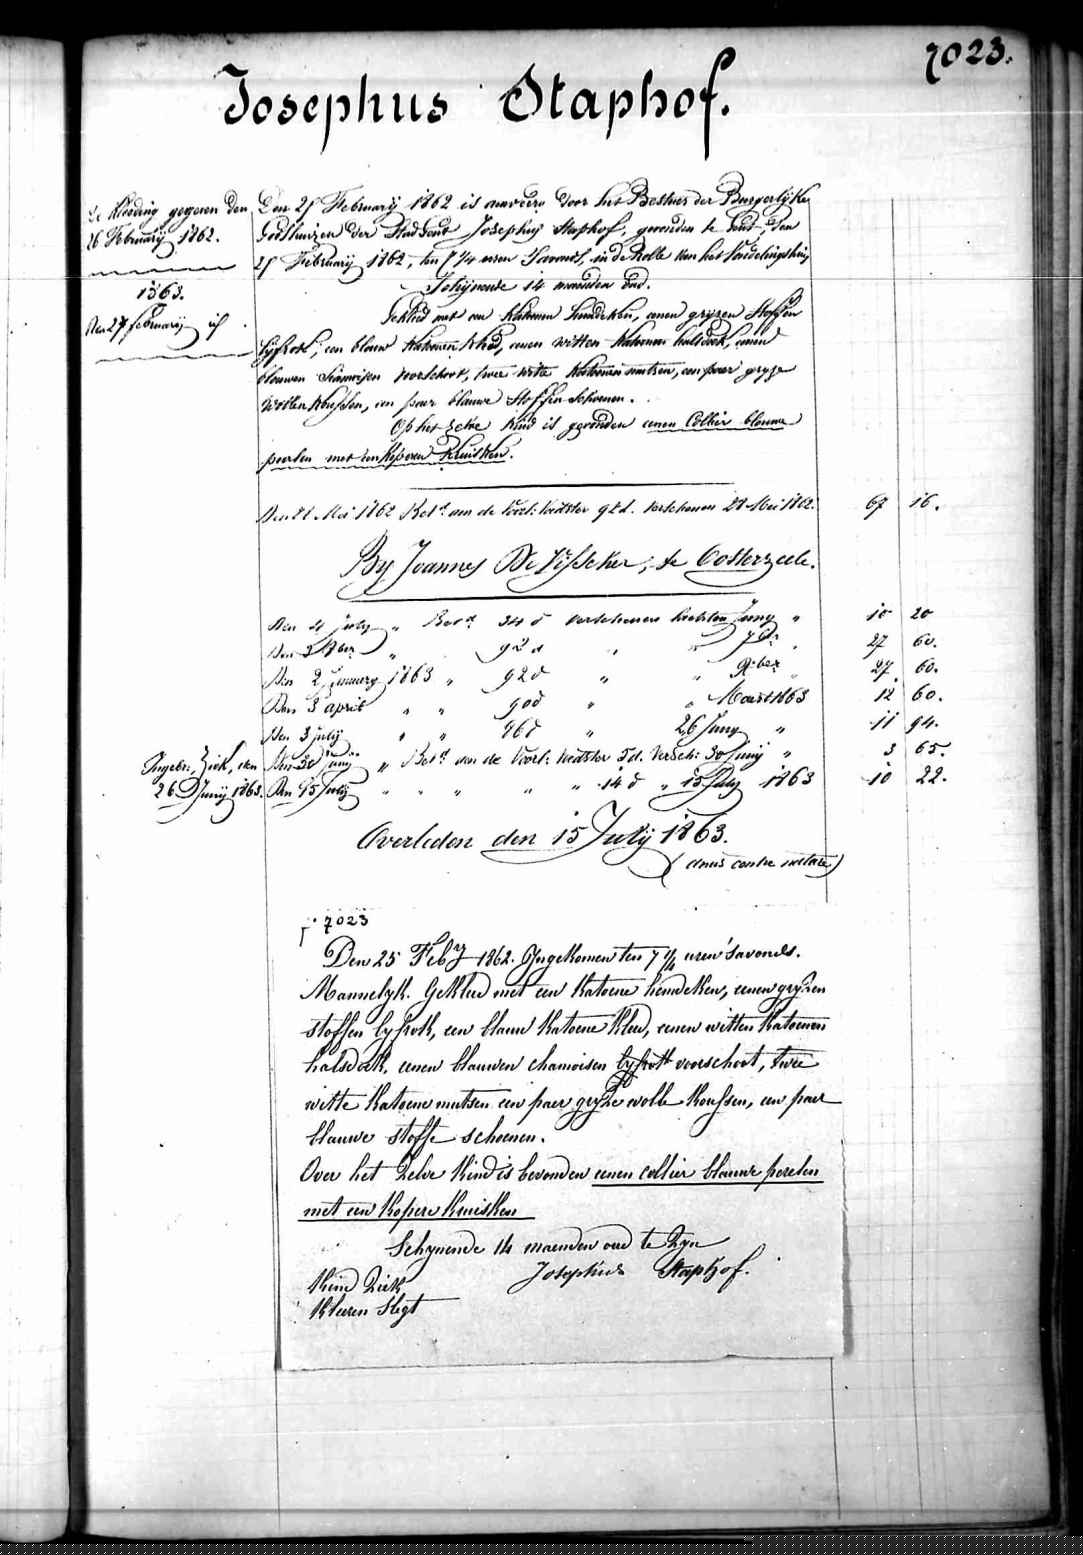 7023.
Josephus Staphof.
de kleeding gegeven den
26 Februarij 1862.
1863.
den 27 februarij id
Den 25 Februarij 1862 is aenveerd door het Bestuer der Burgerlijke
Godshuizen der Stad Gend Josephus Staphof, gevonden te Gend, den
25 Februarij 1862, ten 7 1/4 uren 's avonds, in de Rolle van het Vondelingshuis
Schijnende 14 maenden oud.
Gekleed met een katoenen hemdeken, eenen grijzen stoffen
lijfrok, een blauw katoenen kleed, eenen witten katoenen halsdoek, eenen
blauwen siamoisen voorschoot, twee witte katoenen mutsen, een paer gryze
wollen koussen, een paer blauwe stoffen schoenen.
Op het zelve kind is gevonden eenen collier blauwe
peerlen met een koperen kruisken.
Den 28 Mei 1862 Bet.d aen de Voorl: Voedster 92 d. verschenen 28 Mei 1862. 67 16.
By Joannes De Visscher, te Oosterzeele.
Den 4 july " Bet.d 34 d verschenen lesten Juny " 10 20
Den 3 8ber " 92 d " " 7ber " 27 60.
Den 2 January 1863 " 92 d " " Xber " 27 60.
Den 3 april " " 90 d " " Maert 1863 12 60.
Den 3 july " " 86 d " 26 Juny " 11 94.
Ingebr. Ziek, den
26 Junij 1863.
Den 30 juny " Bet.d aen de Voorl: Voedster 5 d. versch: 30 Junij " 3 65.
Den 15 July " " " " " 14 d " 15 July 1863 10 22.
Overleden den 15 July 1863.
7023
Den 25 Feby 1862. Ingekomen ten 7 1/4 uren 's avonds.
Mannelyk. Gekleed met een katoene hemdeken, eenen gryzen
stoffen lyfrok, een blauw katoene kleed, eenen witten katoenen
halsdoek, eenen blauwen chamoisen lyfrok voorschoot, twee
witte katoene mutsen een paer gryze wolle koussen, een paer
blauwe stoffe schoenen.
Over het zelve kind is bevonden eenen collier blauwe perelen
met een kopere kruisken
Schynende 14 maenden oud te zyn
Josephus Staphof.
Kind Ziek
Kleeren Slegt